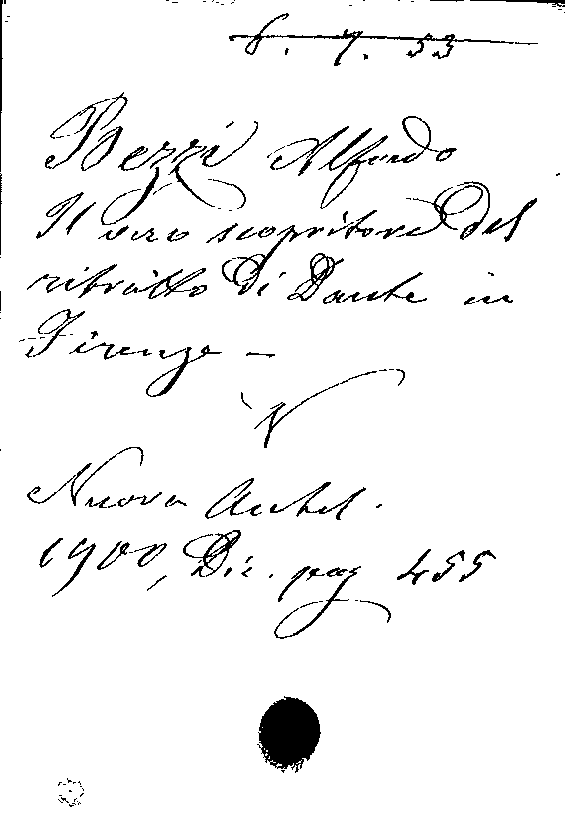 6. 7. 53
Bezzi Alfredo
Il vero scopritore del
ritratto di Dante in
Firenze —
Nuova Antol.
1900, Dic. pag 455